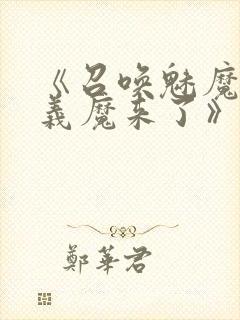 《召唤魅魔
義魔来了》
鄭華君